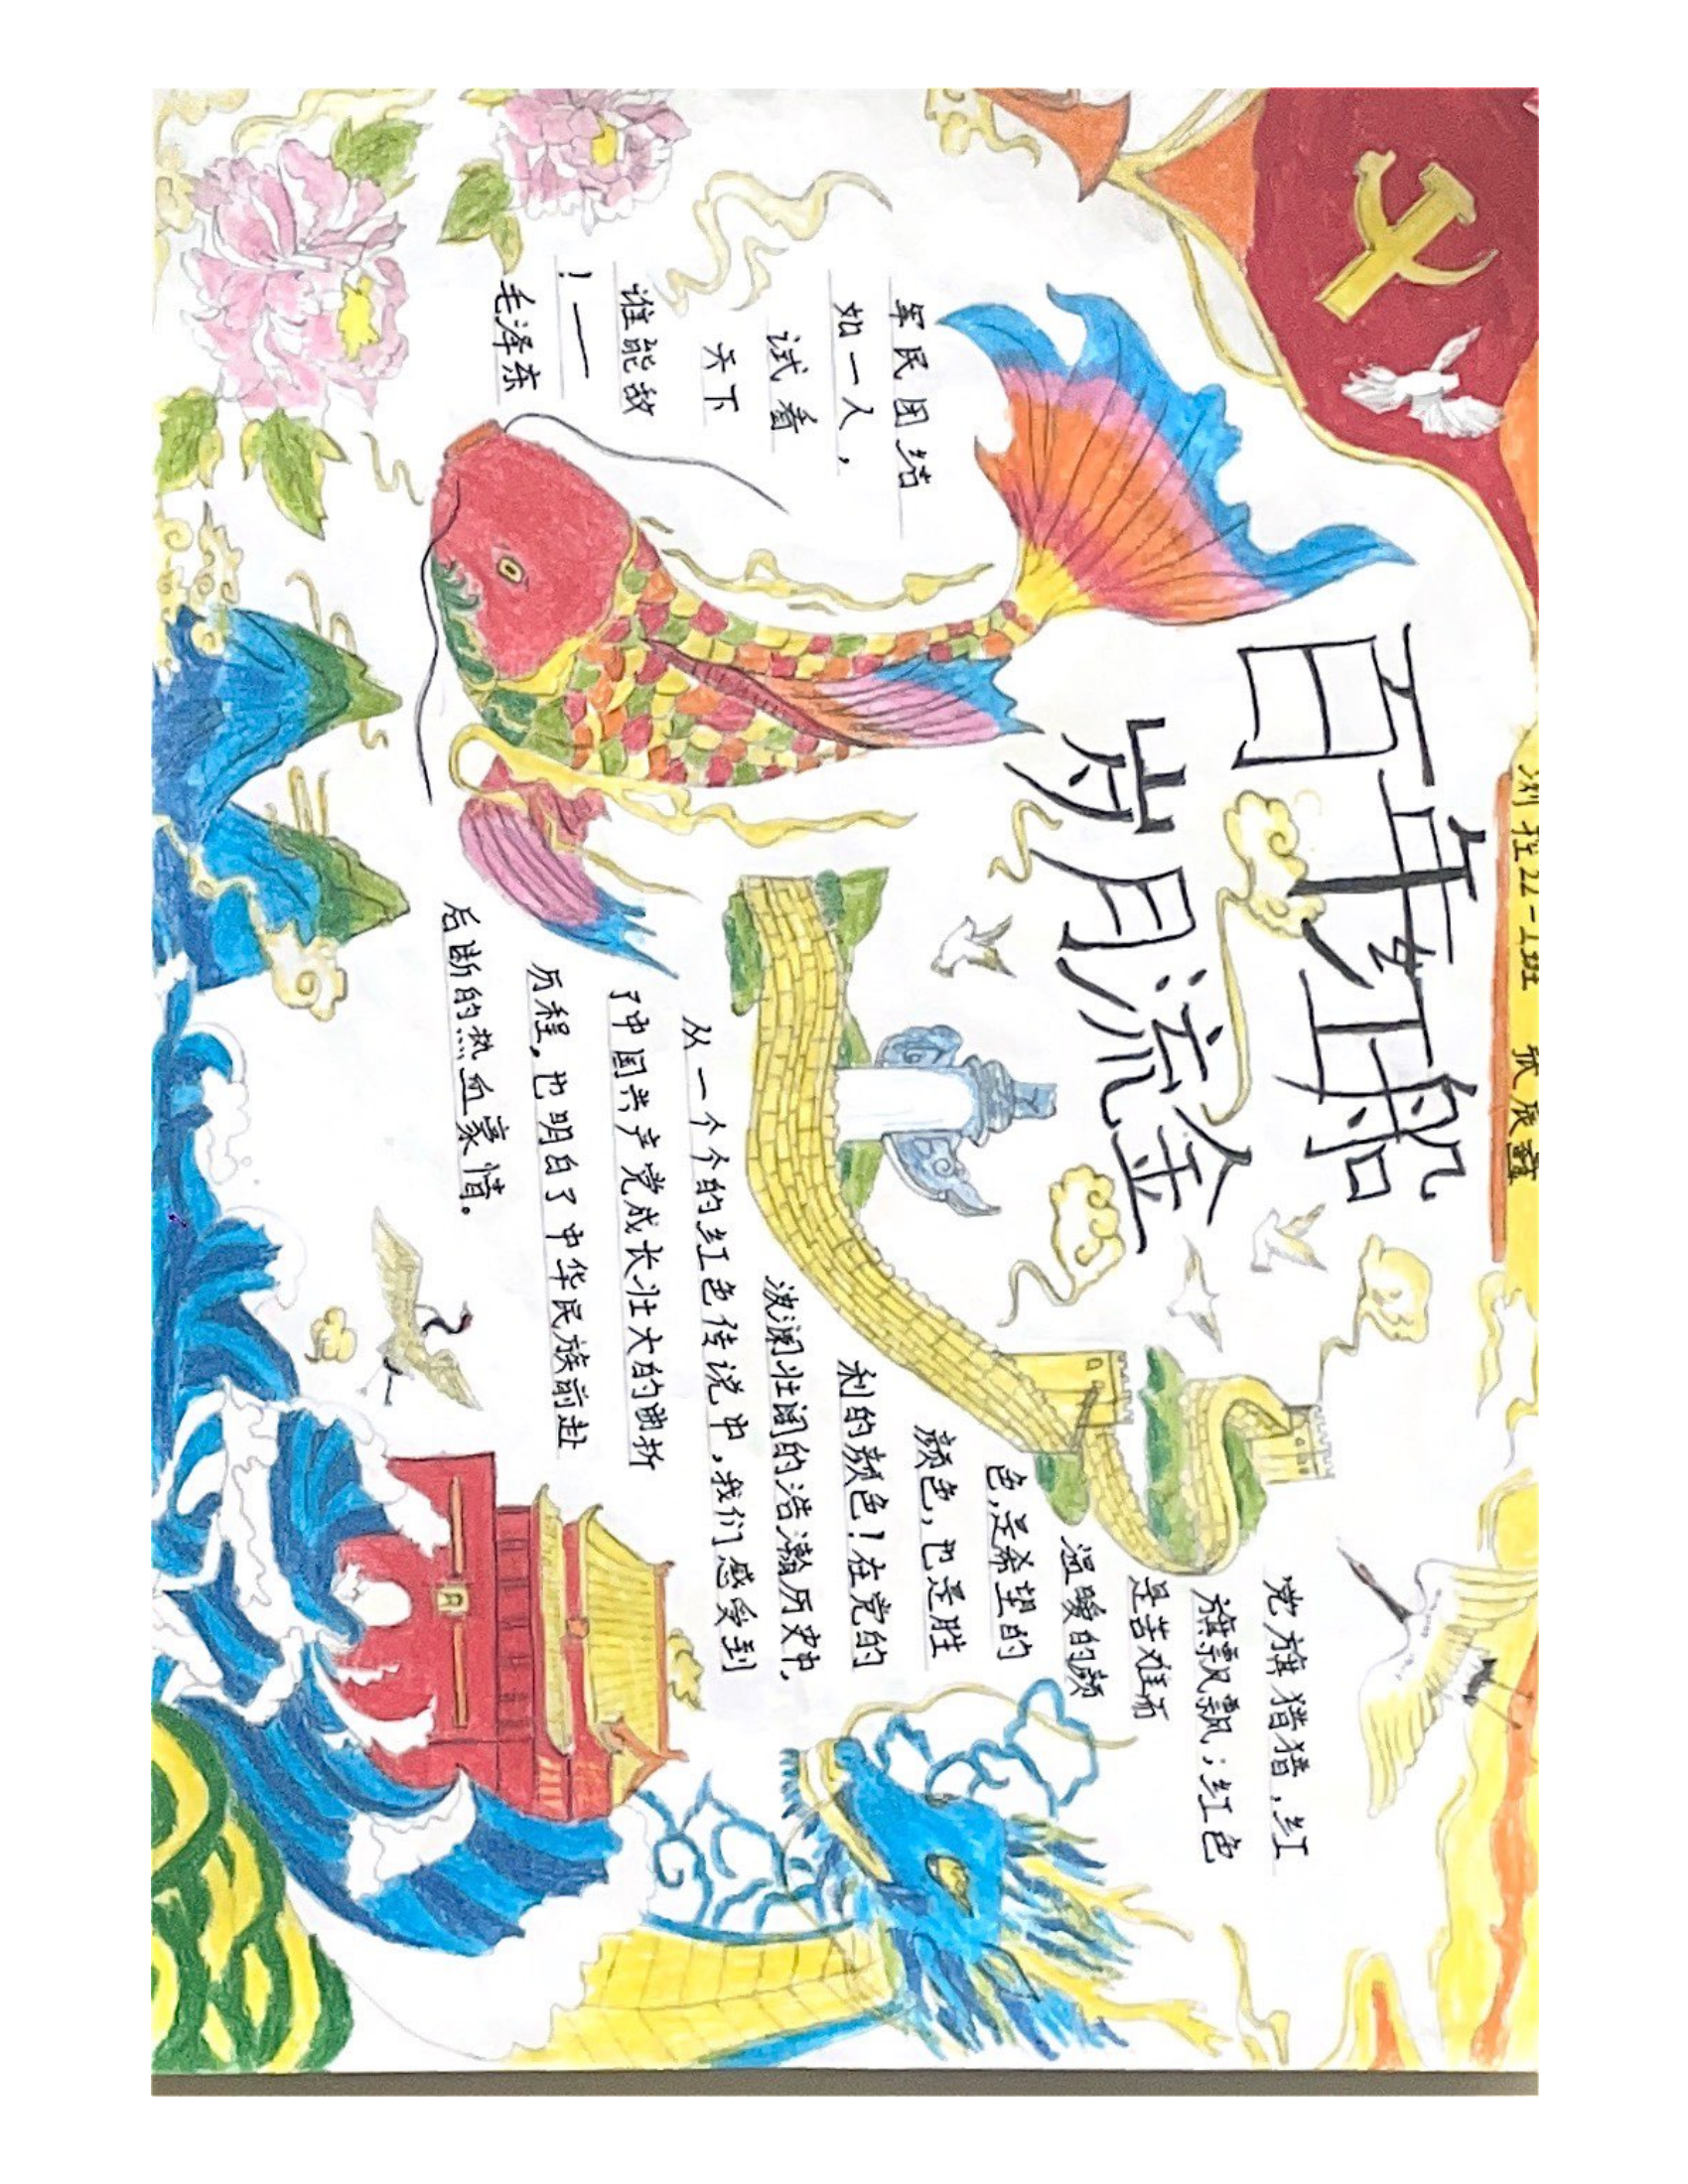 测控22-1班 张辰鑫
百年红船
岁月流金
军民团结
如一人，
试看
天下
谁能敌
！——
毛泽东
党旗猎猎，红
旗飘飘；红色
是苦难而
温暖的颜
色，是希望的
颜色，也是胜
利的颜色！在党的
波澜壮阔的浩瀚历史中，
从一个个的红色传说中，我们感受到
了中国共产党成长壮大的曲折
历程，也明白了中华民族前赴
后断的热血豪情。